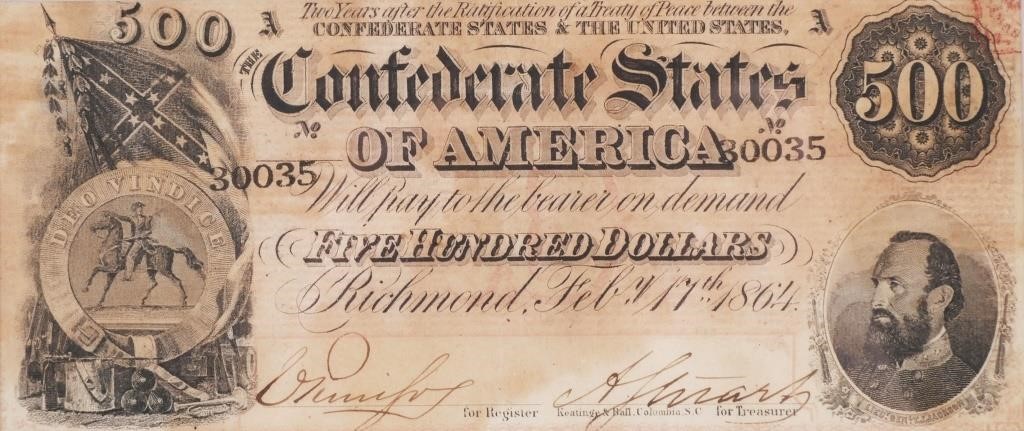 500
A Two Years after the Ratification of a Treaty of Peace between the A
CONFEDERATE STATES & THE UNITED STATES,
THE
Confederate States
500
No No
OF AMERICA
30035 30035
Will pay to the bearer on demand
DEO VINDICE
FIVE HUNDRED DOLLARS
Richmond, Feby 17th 1864.
A Stuart
for Register Keatinge & Ball, Columbia, S.C for Treasurer